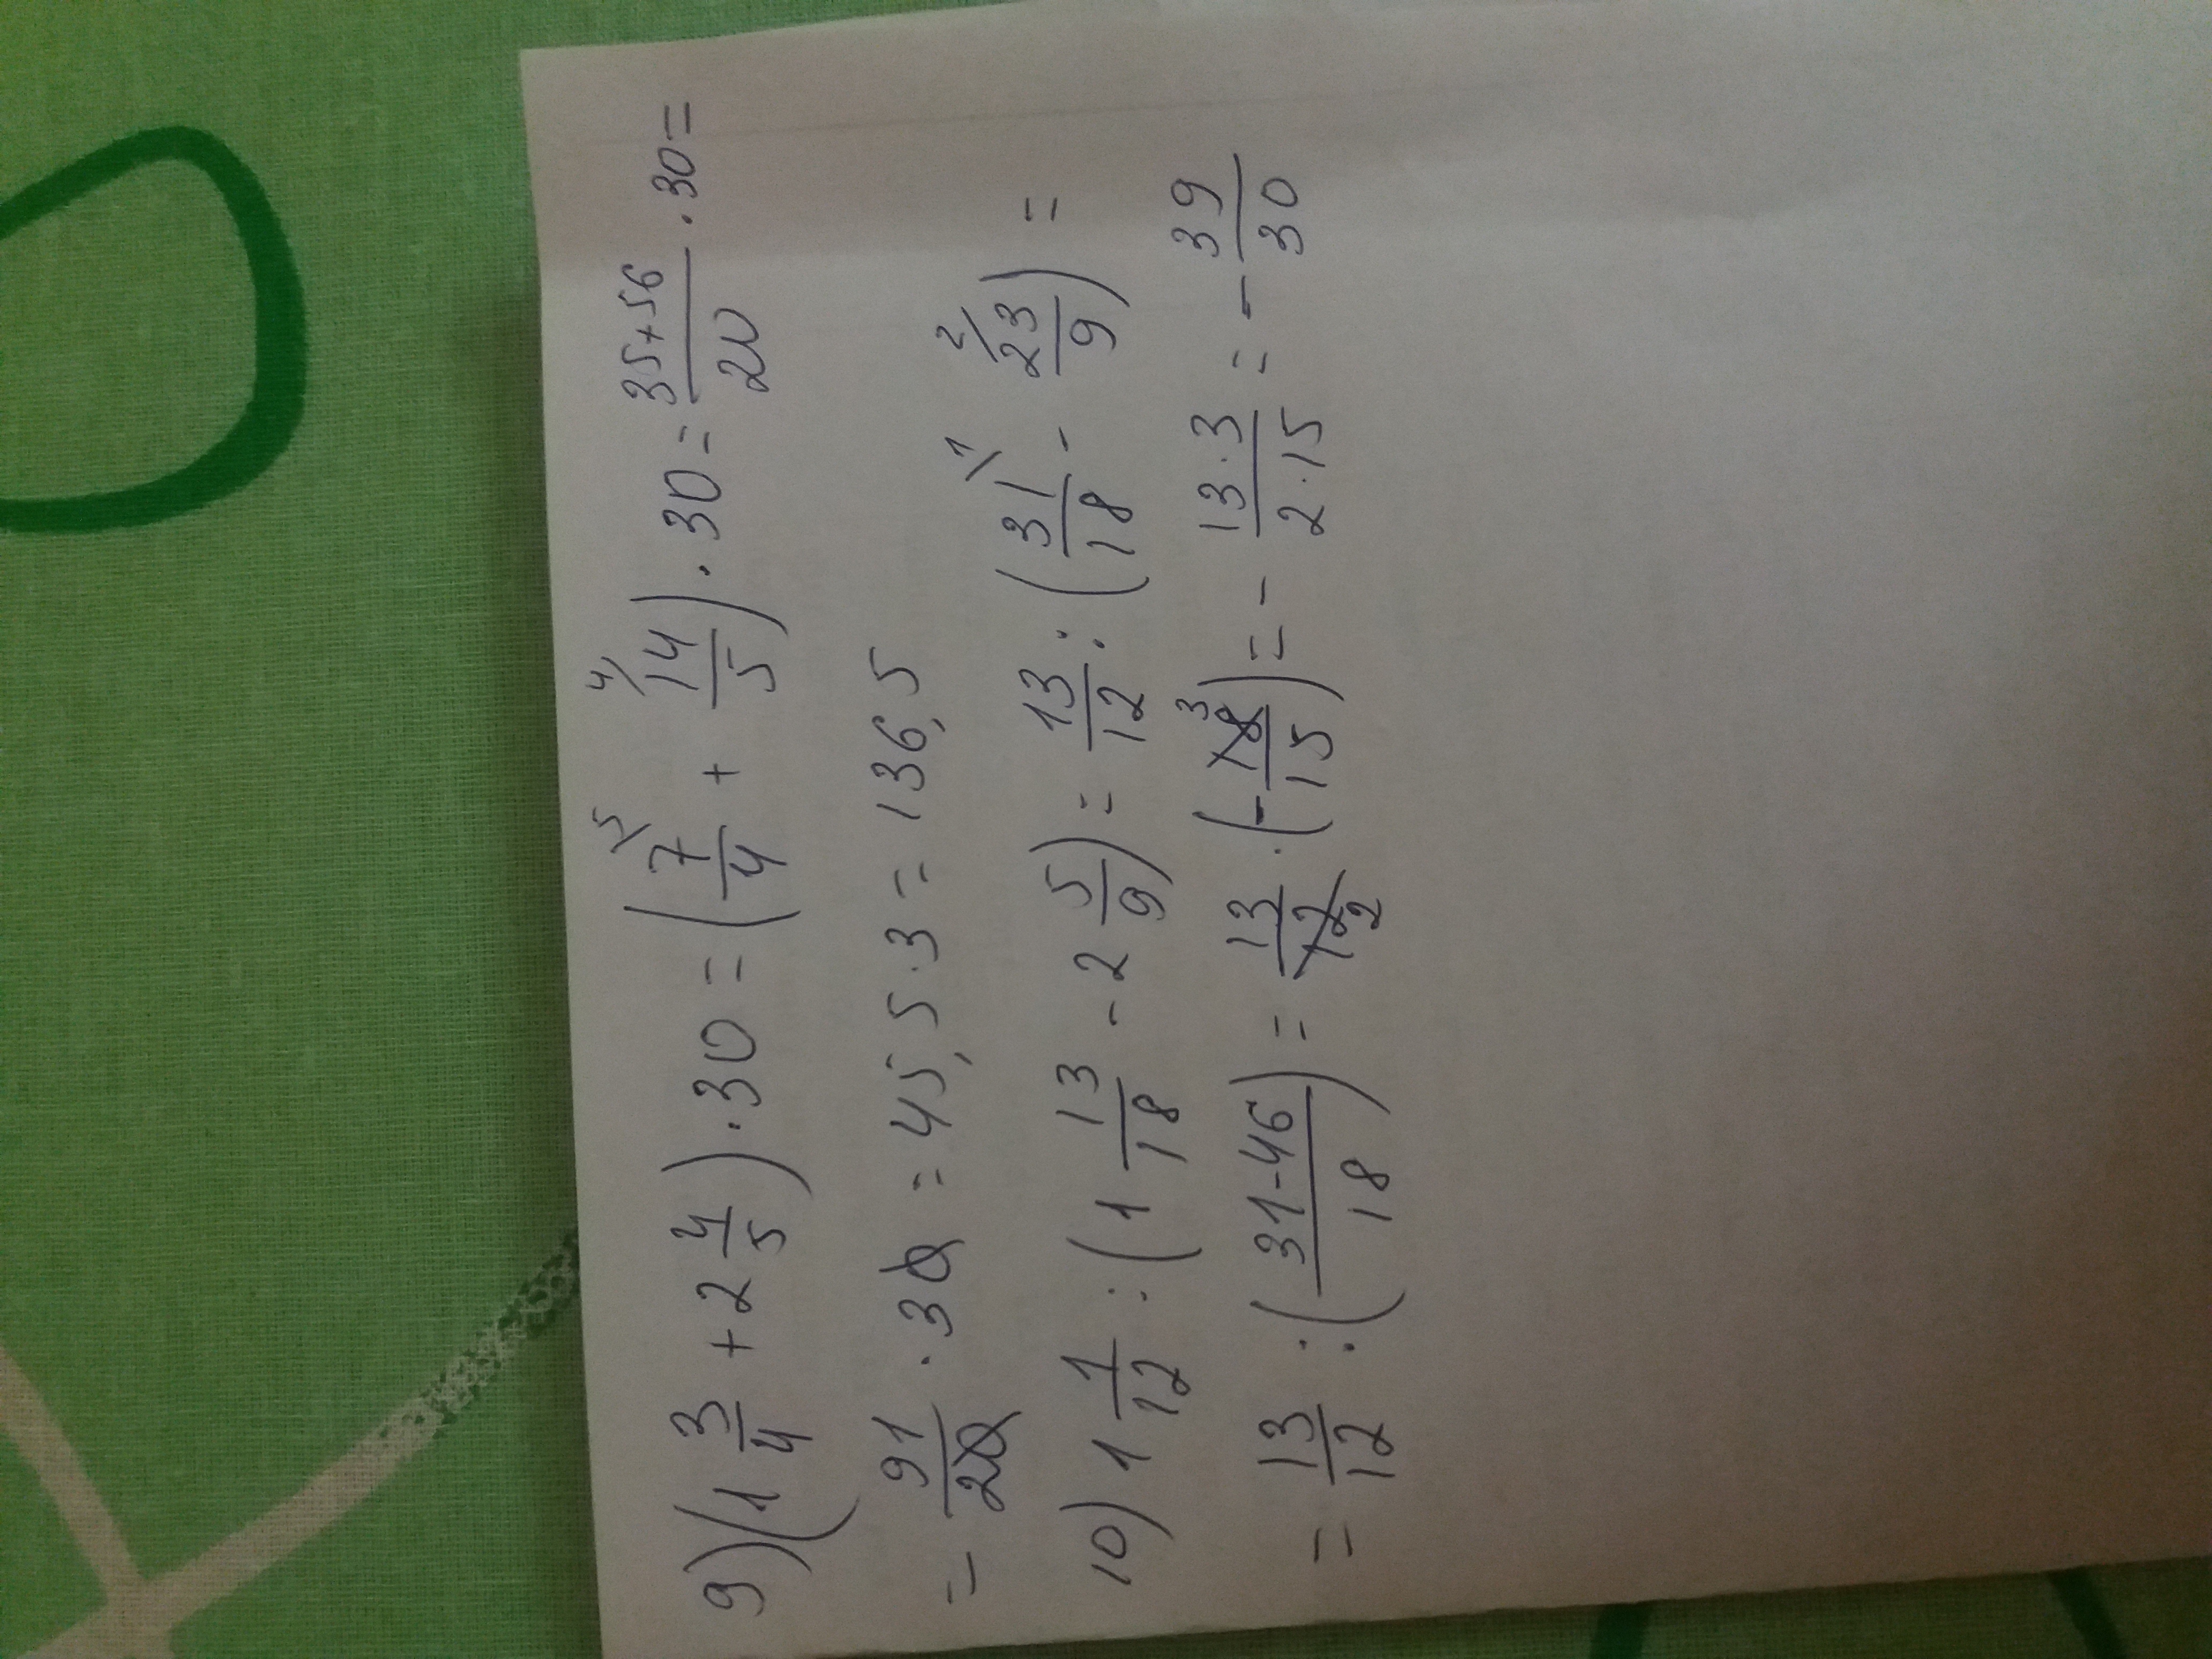 9) (1 3/4 + 2 4/5) · 30 = (7/4 ⁵⁄ + 14/5 ⁴⁄) · 30 = (35+56)/20 · 30 =
= 91/20 · 30 = 45,5 · 3 = 136,5
10) 1 1/12 : (1 13/18 - 2 5/9) = 13/12 : (31/18 ¹⁄ - 23/9 ²⁄) =
= 13/12 : ((31-46)/18) = 13/12 2 · (- 18/15 3) = - (13·3)/(2·15) = - 39/30